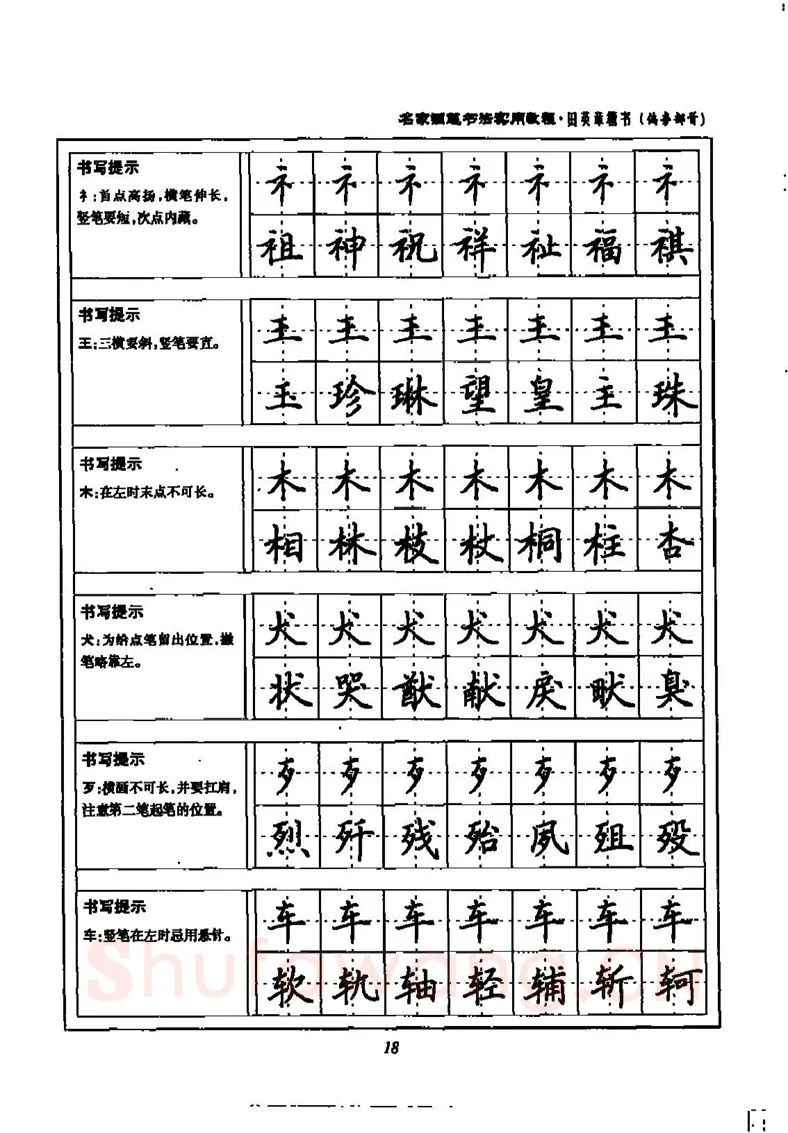 名家钢笔书法实用教程·田英章楷书(偏旁部首)
书写提示
礻:首点高扬,横笔伸长,
竖笔要短,次点内藏。
礻礻礻礻礻礻礻
祖神祝祥祉福祺
书写提示
王:三横要斜,竖笔要直。
王王王王王王王
玉珍琳望皇主珠
书写提示
木:在左时末点不可长。
木木木木木木木
相林枝杖桐柱杏
书写提示
犬:为给点笔留出位置,撇
笔略靠左。
犬犬犬犬犬犬犬
状哭猷献戾畎臭
书写提示
歹:横画不可长,并要扛肩,
注意第二笔起笔的位置。
歹歹歹歹歹歹歹
烈歼残殆夙殂殁
书写提示
车:竖笔在左时忌用悬针。
车车车车车车车
软轨轴轻辅斩轲
Shufawang.CN
18